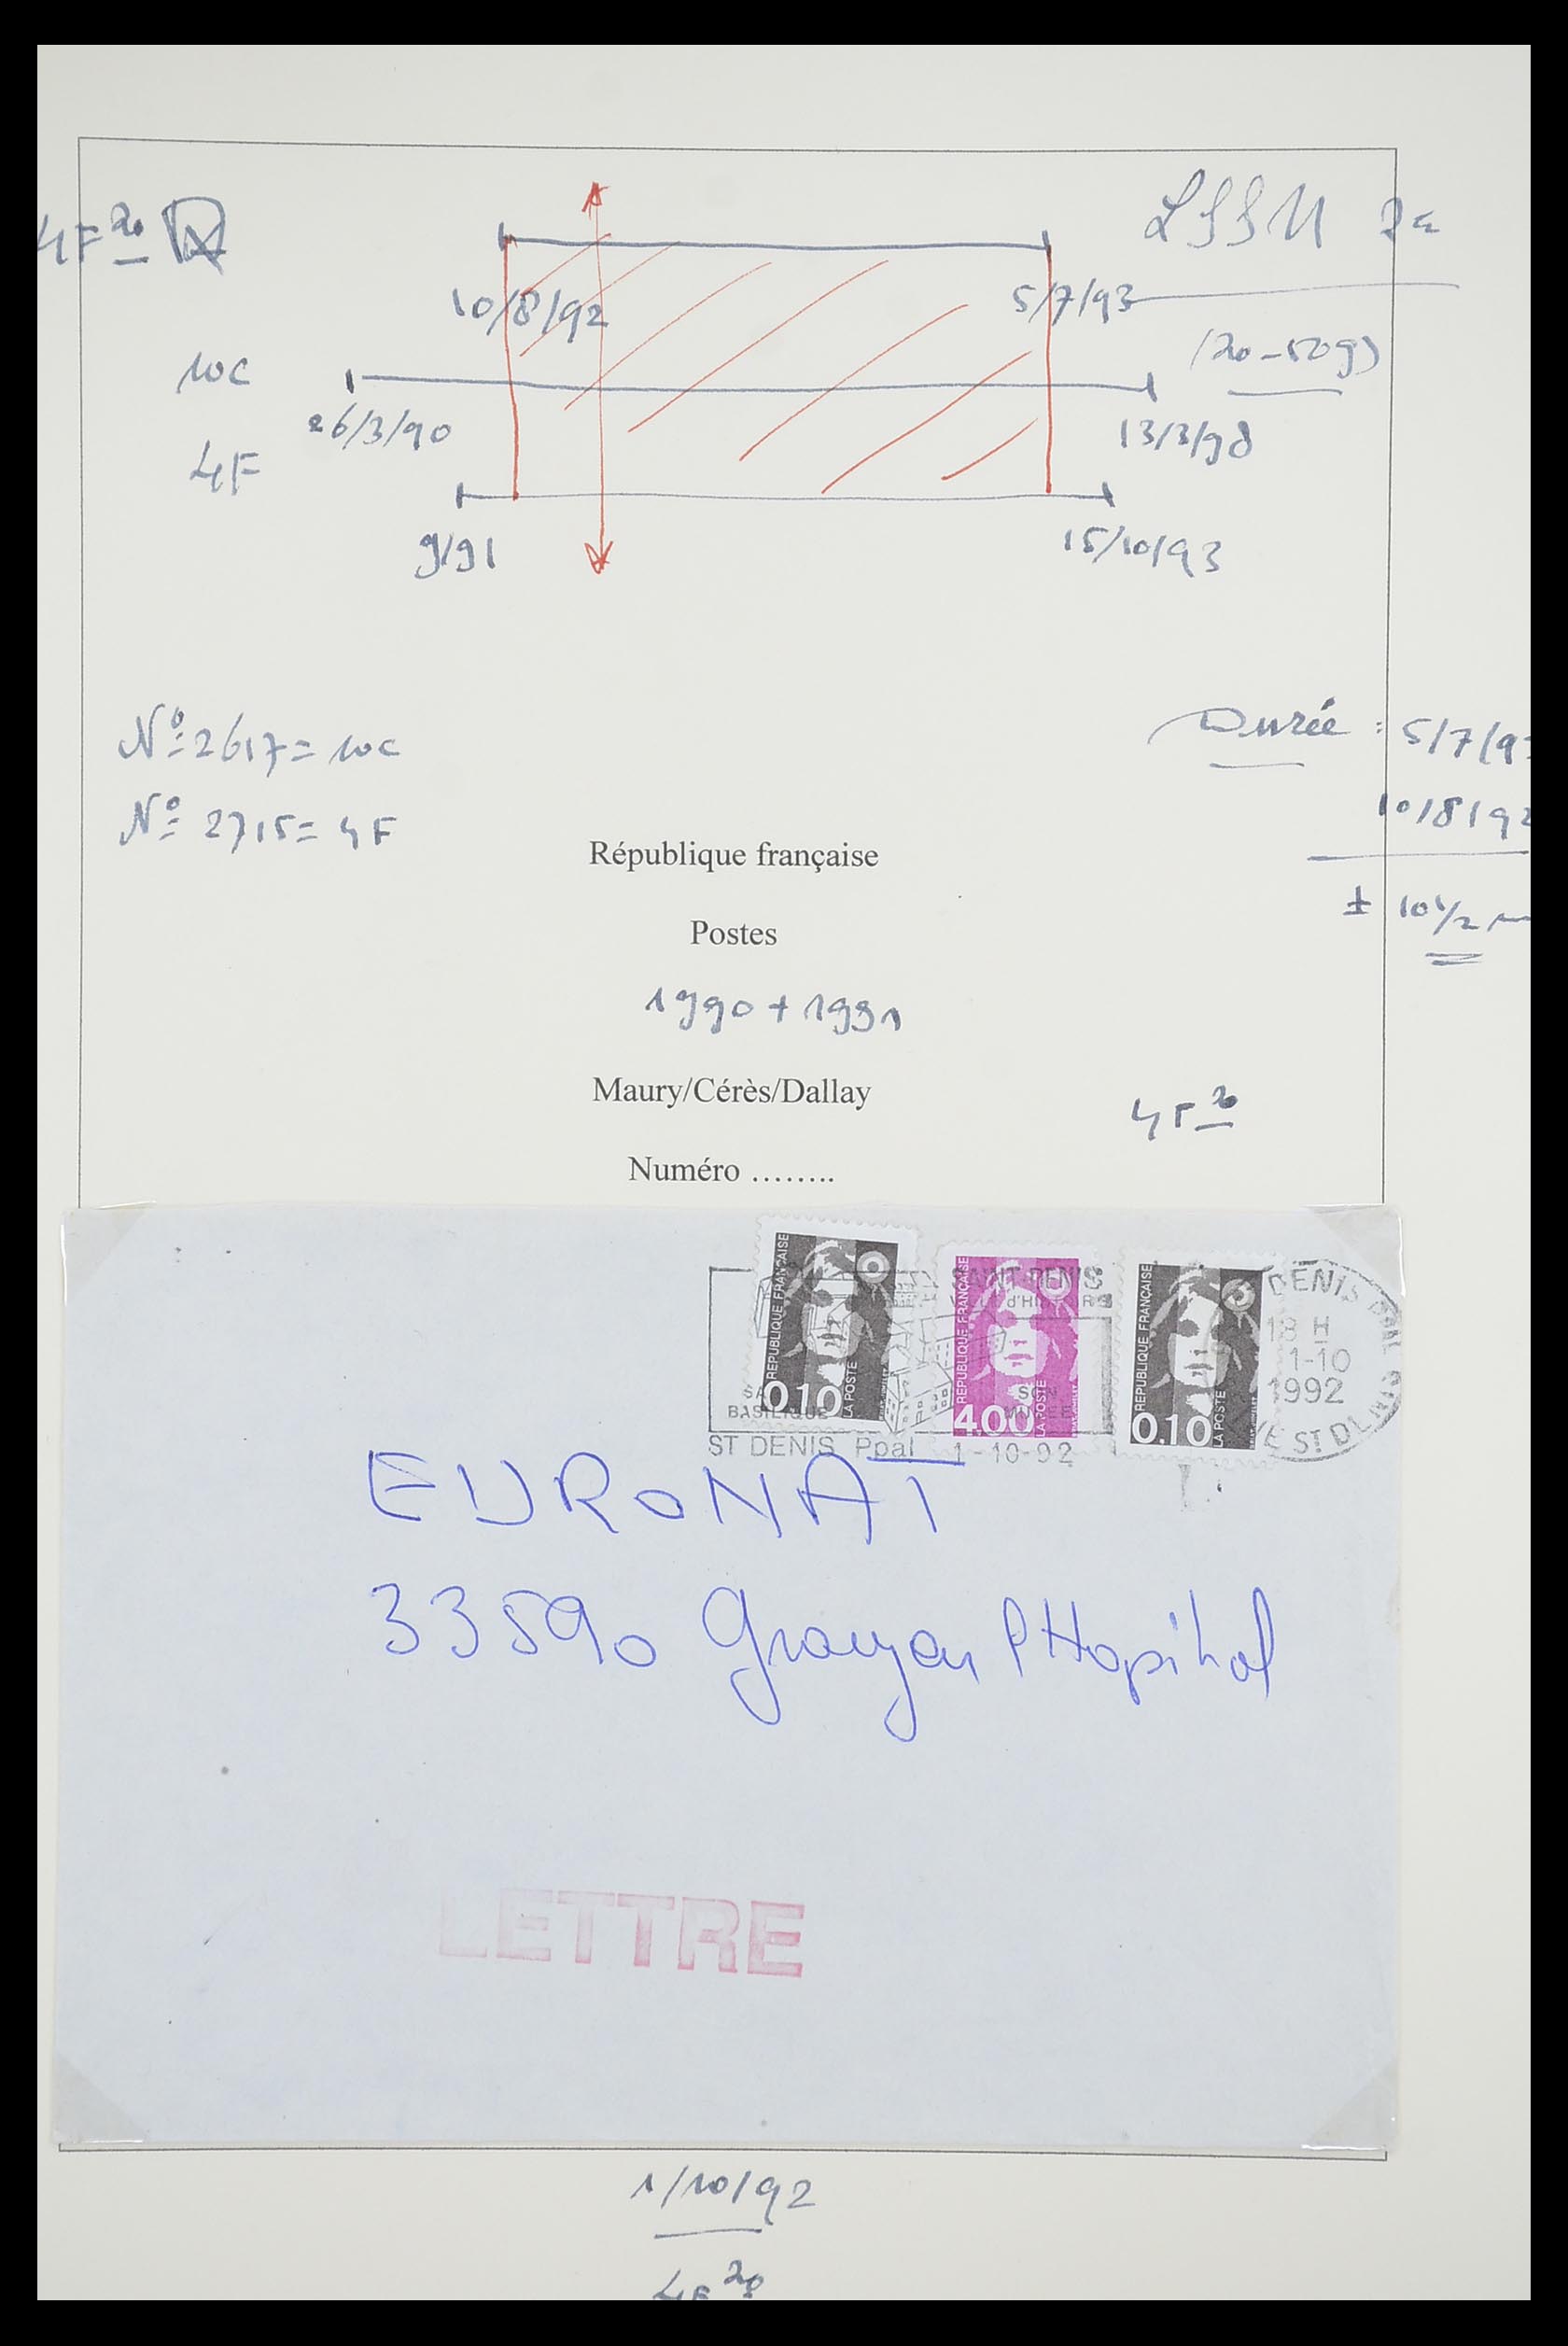 4F 20
10/8/92
5/7/93
(20-50g)
10c
26/3/90
13/3/98
4F
9/91
15/10/93
N° 2617 = 10c
N° 2715 = 4F
Durée : 5/7/93
10/8/92
± 10 1/2 m
République française
Postes
1990 + 1991
Maury/Cérès/Dallay
4F 20
Numéro ........
REPUBLIQUE FRANÇAISE
LA POSTE
0.10
REPUBLIQUE FRANÇAISE
LA POSTE
4.00
REPUBLIQUE FRANÇAISE
LA POSTE
0.10
SAINT-DENIS
d'HISTOIRE
SA
BASILIQUE
SON
MUSEE
ST DENIS Ppal 1-10-92
DENIS PPAL
18 H
1-10
1992
ST DENIS
EURONAT
33590 Grayan l'Hopital
LETTRE
1/10/92
4F 20